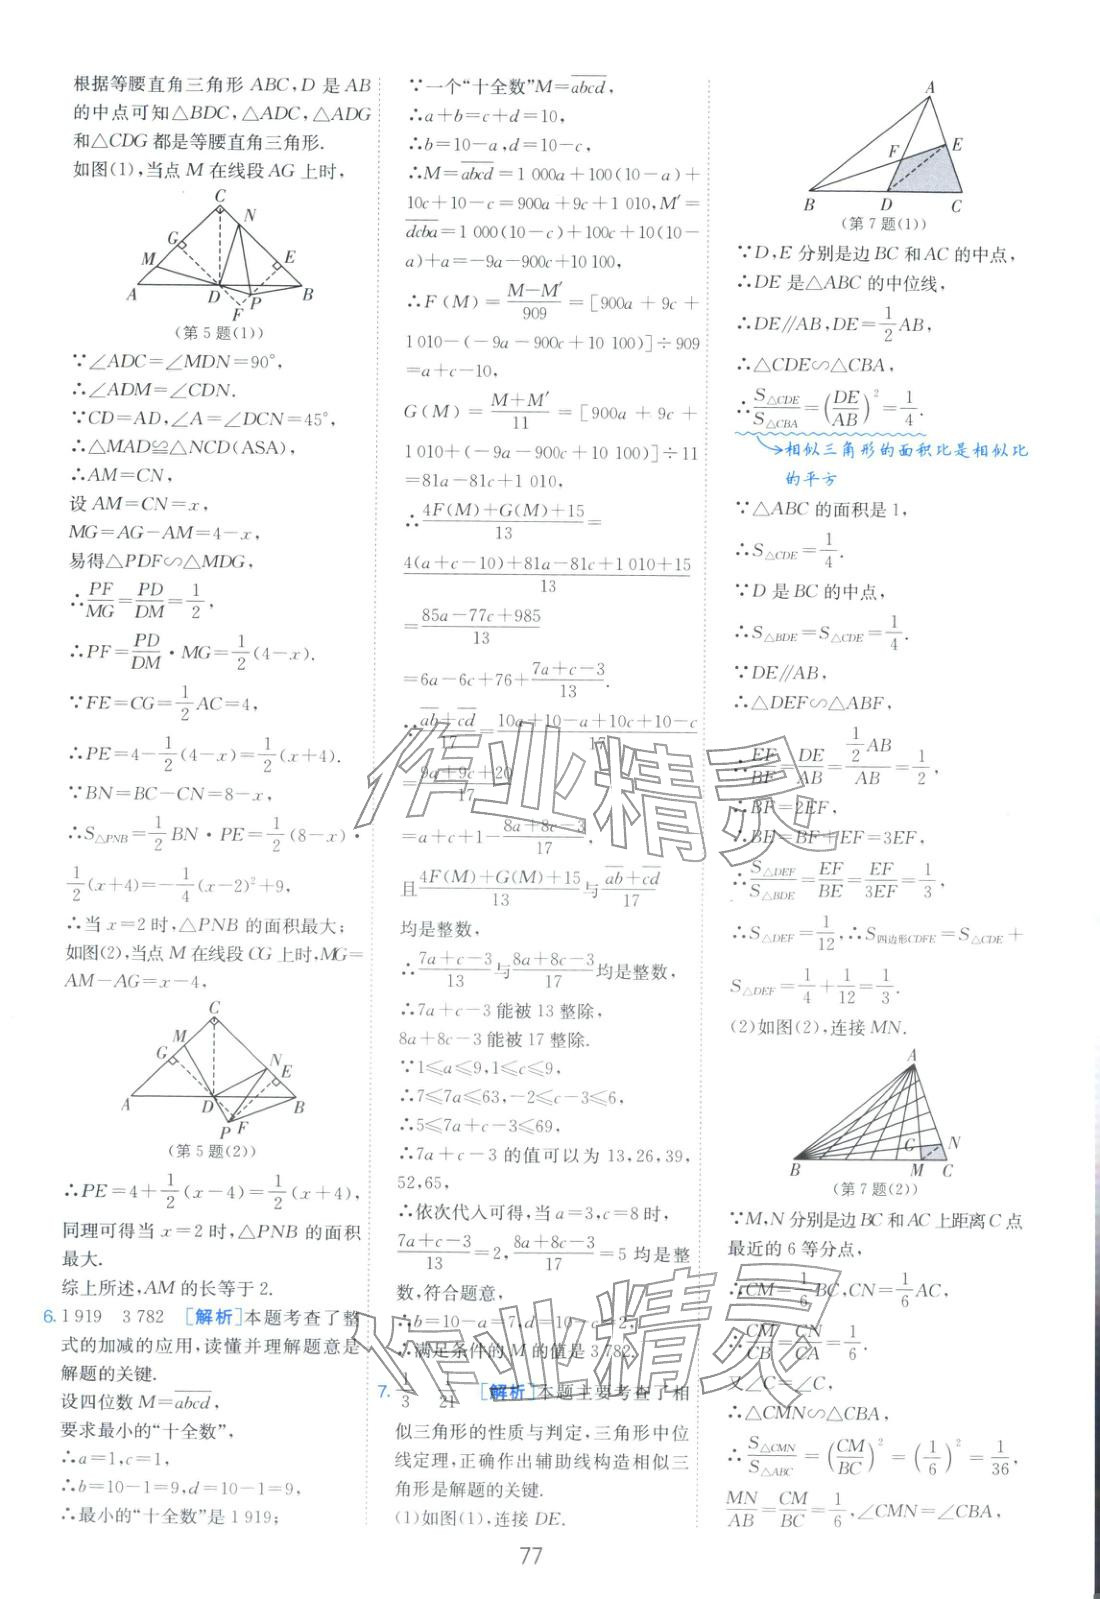 根据等腰直角三角形 ABC,D 是 AB
的中点可知△BDC,△ADC,△ADG
和△CDG 都是等腰直角三角形.
如图(1),当点 M 在线段 AG 上时,
C
N
G
E
M
A
D
P
B
F
(第 5 题(1))
∵∠ADC=∠MDN=90°,
∴∠ADM=∠CDN.
∵CD=AD,∠A=∠DCN=45°,
∴△MAD≌△NCD(ASA),
∴AM=CN,
设 AM=CN=x,
MG=AG-AM=4-x,
易得△PDF∽△MDG,
∴PF/MG=PD/DM=1/2,
∴PF=PD/DM·MG=1/2(4-x).
∵FE=CG=1/2AC=4,
∴PE=4-1/2(4-x)=1/2(x+4).
∵BN=BC-CN=8-x,
∴S△PNB=1/2BN·PE=1/2(8-x)·
1/2(x+4)=-1/4(x-2)²+9,
∴当 x=2 时,△PNB 的面积最大;
如图(2),当点 M 在线段 CG 上时,MG=
AM-AG=x-4,
C
M
G
N
E
A
D
B
P
F
(第 5 题(2))
∴PE=4+1/2(x-4)=1/2(x+4),
同理可得当 x=2 时,△PNB 的面积
最大.
综上所述,AM 的长等于 2.
6. 1 919 3 782 [解析]本题考查了整
式的加减的应用,读懂并理解题意是
解题的关键.
设四位数 M=a̅b̅c̅d̅,
要求最小的“十全数”,
∴a=1,c=1,
∴b=10-1=9,d=10-1=9,
∴最小的“十全数”是 1 919;
∵一个“十全数”M=a̅b̅c̅d̅,
∴a+b=c+d=10,
∴b=10-a,d=10-c,
∴M=a̅b̅c̅d̅=1 000a+100(10-a)+
10c+10-c=900a+9c+1 010,M′=
d̅c̅b̅a̅=1 000(10-c)+100c+10(10-
a)+a=-9a-900c+10 100,
∴F(M)=(M-M′)/909=[900a+9c+
1 010-(-9a-900c+10 100)]÷909
=a+c-10,
G(M)=(M+M′)/11=[900a+9c+
1 010+(-9a-900c+10 100)]÷11
=81a-81c+1 010,
∴(4F(M)+G(M)+15)/13=
(4(a+c-10)+81a-81c+1 010+15)/13
=(85a-77c+985)/13
=6a-6c+76+(7a+c-3)/13.
∵(a̅b̅+c̅d̅)/17=(10a+10-a+10c+10-c)/17
=(9a+9c+20)/17
=a+c+1-(8a+8c-3)/17,
且(4F(M)+G(M)+15)/13与(a̅b̅+c̅d̅)/17
均是整数,
∴(7a+c-3)/13与(8a+8c-3)/17均是整数,
∴7a+c-3 能被 13 整除,
8a+8c-3 能被 17 整除.
∵1≤a≤9,1≤c≤9,
∴7≤7a≤63,-2≤c-3≤6,
∴5≤7a+c-3≤69,
∴7a+c-3 的值可以为 13,26,39,
52,65,
∴依次代入可得,当 a=3,c=8 时,
(7a+c-3)/13=2,(8a+8c-3)/17=5 均是整
数,符合题意,
∴b=10-a=7,d=10-c=2,
∴满足条件的 M 的值是 3 782.
7. 1/3 1/21 [解析]本题主要考查了相
似三角形的性质与判定,三角形中位
线定理,正确作出辅助线构造相似三
角形是解题的关键.
(1)如图(1),连接 DE.
A
E
F
B
D
C
(第 7 题(1))
∵D,E 分别是边 BC 和 AC 的中点,
∴DE 是△ABC 的中位线,
∴DE∥AB,DE=1/2AB,
∴△CDE∽△CBA,
∴S△CDE/S△CBA=(DE/AB)²=1/4.
相似三角形的面积比是相似比
的平方
∵△ABC 的面积是 1,
∴S△CDE=1/4.
∵D 是 BC 的中点,
∴S△BDE=S△CDE=1/4.
∵DE∥AB,
∴△DEF∽△ABF,
∴EF/BF=DE/AB=(1/2AB)/AB=1/2,
∴BF=2EF,
∴BE=BF+EF=3EF,
∴S△DEF/S△BDE=EF/BE=EF/3EF=1/3,
∴S△DEF=1/12,∴S四边形CDFE=S△CDE+
S△DEF=1/4+1/12=1/3.
(2)如图(2),连接 MN.
A
G
N
B
M
C
(第 7 题(2))
∵M,N 分别是边 BC 和 AC 上距离 C 点
最近的 6 等分点,
∴CM=1/6BC,CN=1/6AC,
∴CM/CB=CN/CA=1/6.
又∠C=∠C,
∴△CMN∽△CBA,
∴S△CMN/S△ABC=(CM/BC)²=(1/6)²=1/36,
MN/AB=CM/BC=1/6,∠CMN=∠CBA,
77
作业精灵
作业精灵